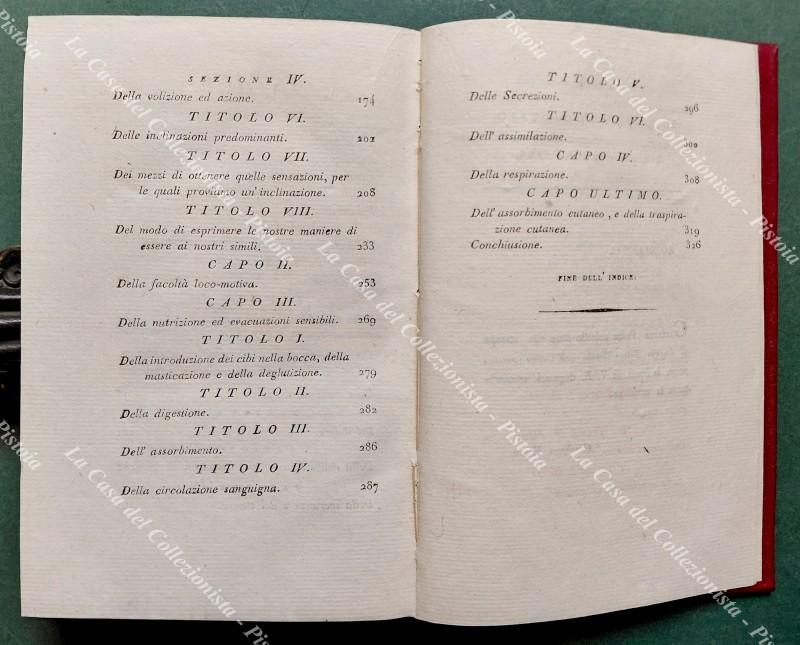 SEZIONE IV.
Della volizione ed azione. 174
TITOLO VI.
Delle inclinazioni predominanti. 202
TITOLO VII.
Dei mezzi di ottenere quelle sensazioni, per
le quali proviamo un' inclinazione. 208
TITOLO VIII.
Del modo di esprimere le nostre maniere di
essere ai nostri simili. 233
CAPO II.
Della facoltà loco-motiva. 253
CAPO III.
Della nutrizione ed evacuazioni sensibili. 269
TITOLO I.
Della introduzione dei cibi nella bocca, della
masticazione e della deglutizione. 279
TITOLO II.
Della digestione. 282
TITOLO III.
Dell' assorbimento. 286
TITOLO IV.
Della circolazione sanguigna. 287
TITOLO V.
Delle Secrezioni. 296
TITOLO VI.
Dell' assimilazione.
CAPO IV.
Della respirazione. 308
CAPO ULTIMO.
Dell' assorbimento cutaneo, e della traspira-
zione cutanea. 319
Conchiusione. 326
FINE DELL' INDICE.
La Casa del Collezionista - Pistoia